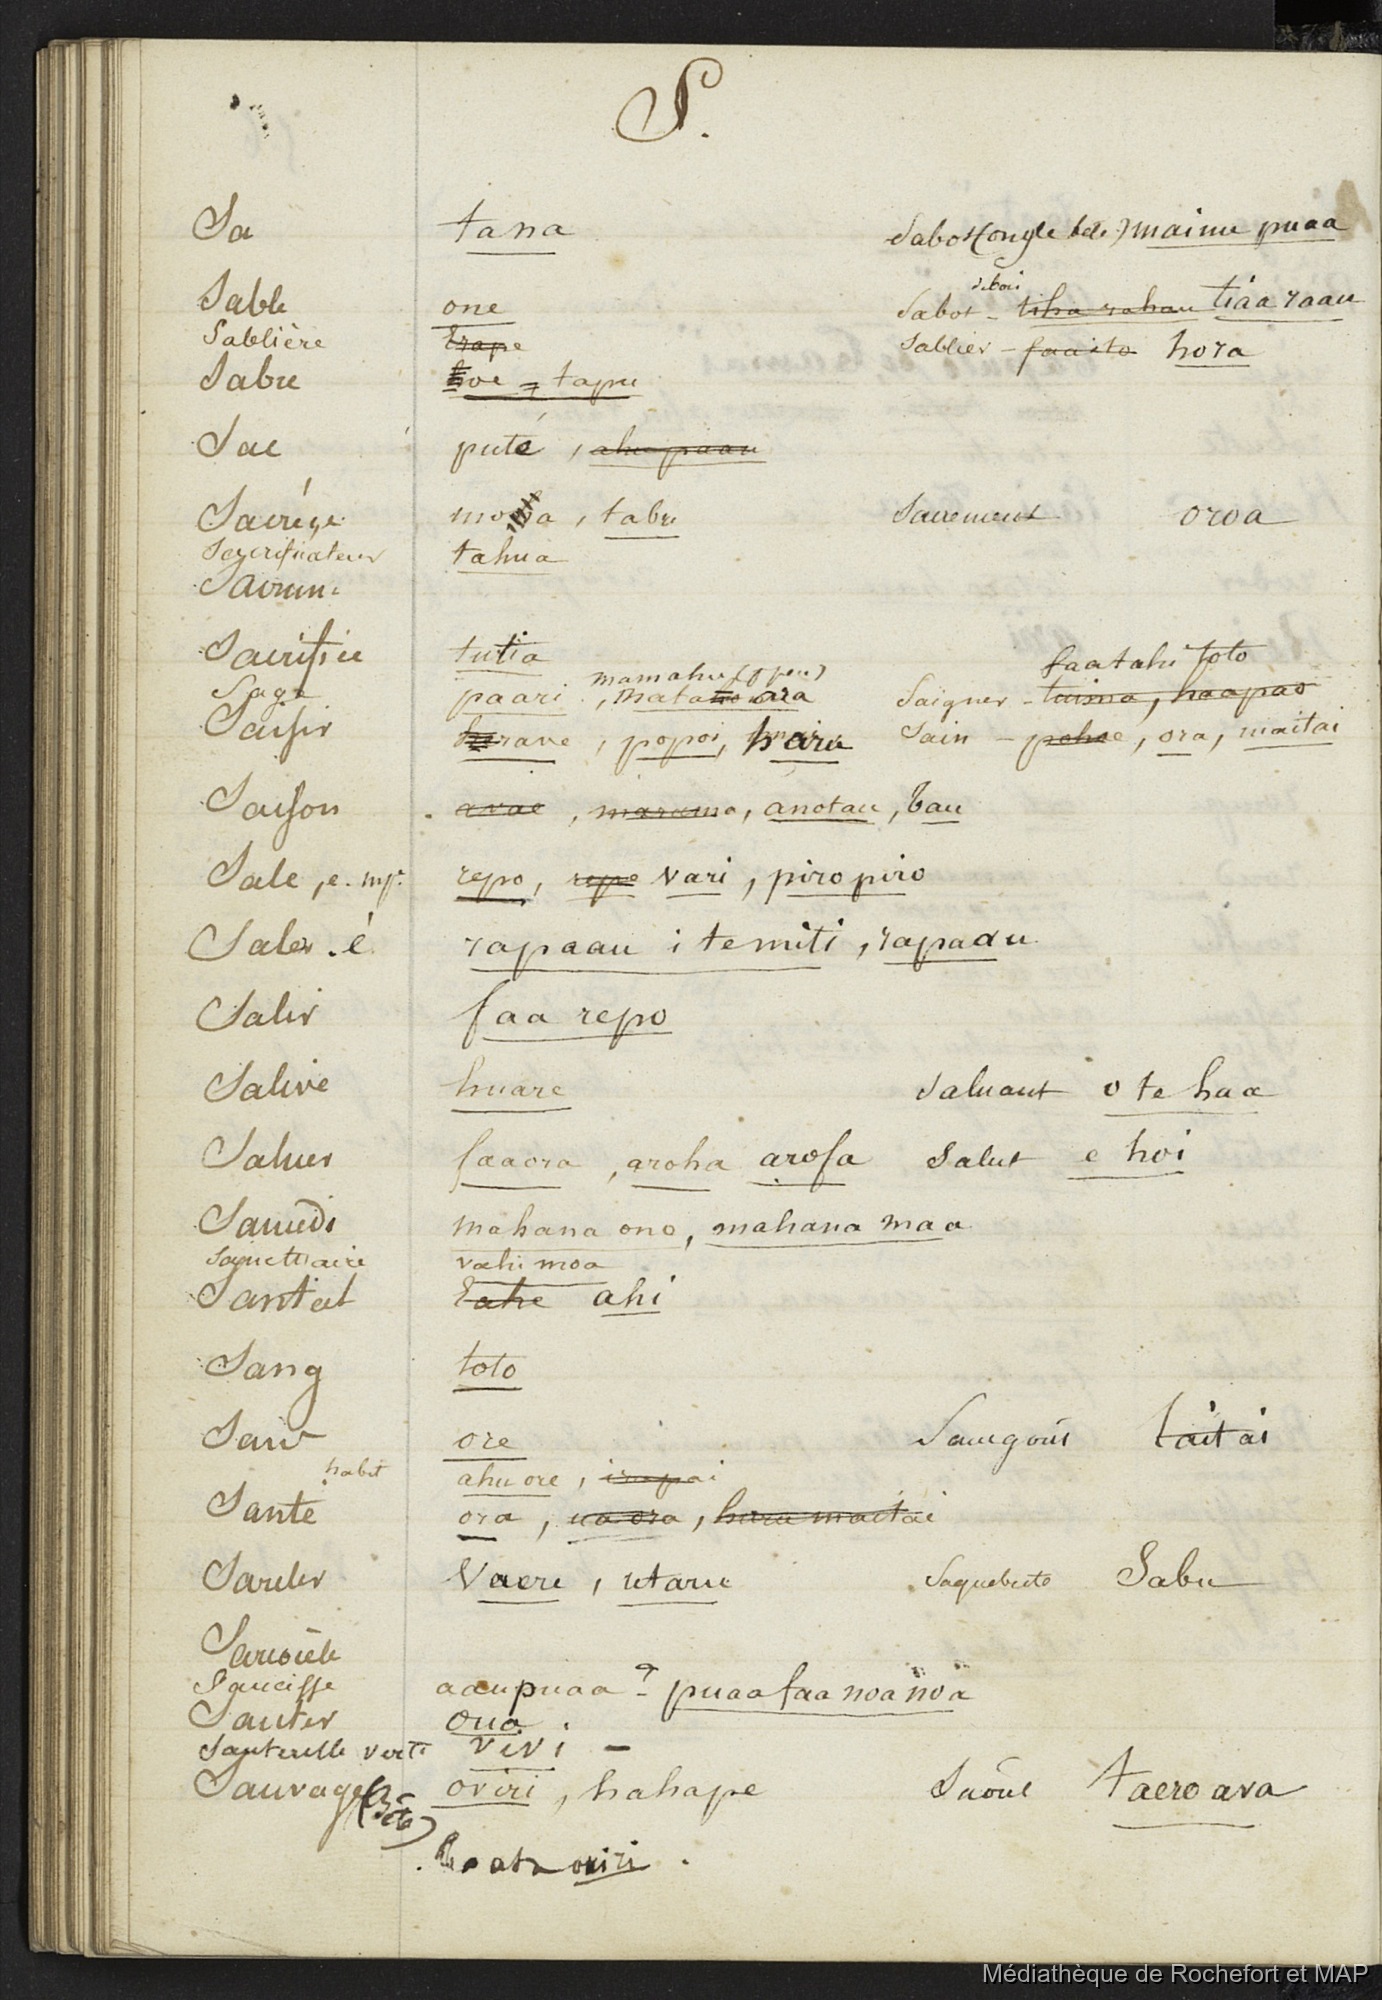 S.
Sa tana Sabot (ongle bête) maiuu puaa
de bois
Sable one Sabot - tiha rahau tiáa raau
Sablière Erape Sablier - faaito hora
Sabre hoe = tapu
Sac puté, ahu paau
Sacrége moha, tabu Sacrement oroa
Sacrificateur tahua
Sacrum
Sacrifice tutia faatahi toto
mamahu (
Sage paari, ara Saigner - haapao
Saisir rave, popoi, haru Sain - pohoe, ora, maitai
Saison avae, marama, anotau, tau
Sale, e. repo, repe vari, piropiro
Saler. é rapaau i te miti, rapaau
Salir faa repo
Salive huare Saluant o te haa
Saluer faaora, aroha arofa Salut e hoi
Samedi mahana ono, mahana maa
Sanctuaire vahi moa
Santal Eahe ahi
Sang toto
Sans ore Sans goût taitai
habit ahu ore,
Santé ora, ua ora, huru maitai
Sarcler Vaere, utaru Saquebute Sabu
Sarcoèle
Saucisse aaupuaa - ? puaa faa noa noa
Sauter oua
Sauterelle verte vivi -
Sauvage (Bête) oviri, hahape Saôul taero ava
taata oviri.
Médiathèque de Rochefort et MAP